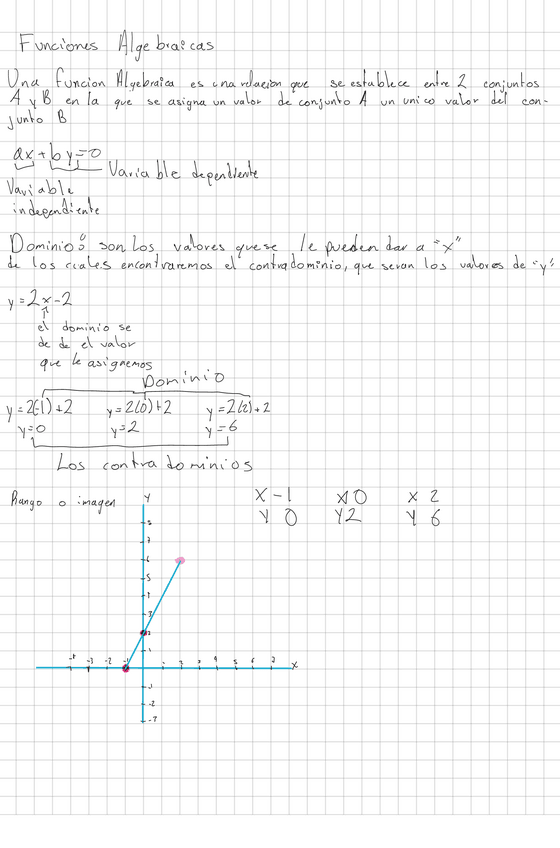 Funciones Algebraicas
Una funcion Algebraica es una relacion que se establece entre 2 conjuntos
A y B en la que se asigna un valor de conjunto A un unico valor del con-
junto B
ax + by = 0
Variable dependiente
Variable
independiente
Dominio: son los valores que se le pueden dar a "x"
de los cuales encontraremos el contradominio, que seran los valores de "y"
y = 2x - 2
el dominio se
de de el valor
que le asignemos
Dominio
y = 2(-1) + 2 y = 2(0) + 2 y = 2(2) + 2
y = 0 y = 2 y = 6
Los contradominios
Rango o imagen Y
X -1 X 0 X 2
Y 0 Y 2 Y 6
7
6
5
3
2
1
-3 -2 -1
4 5 6 7 X
-1
-2